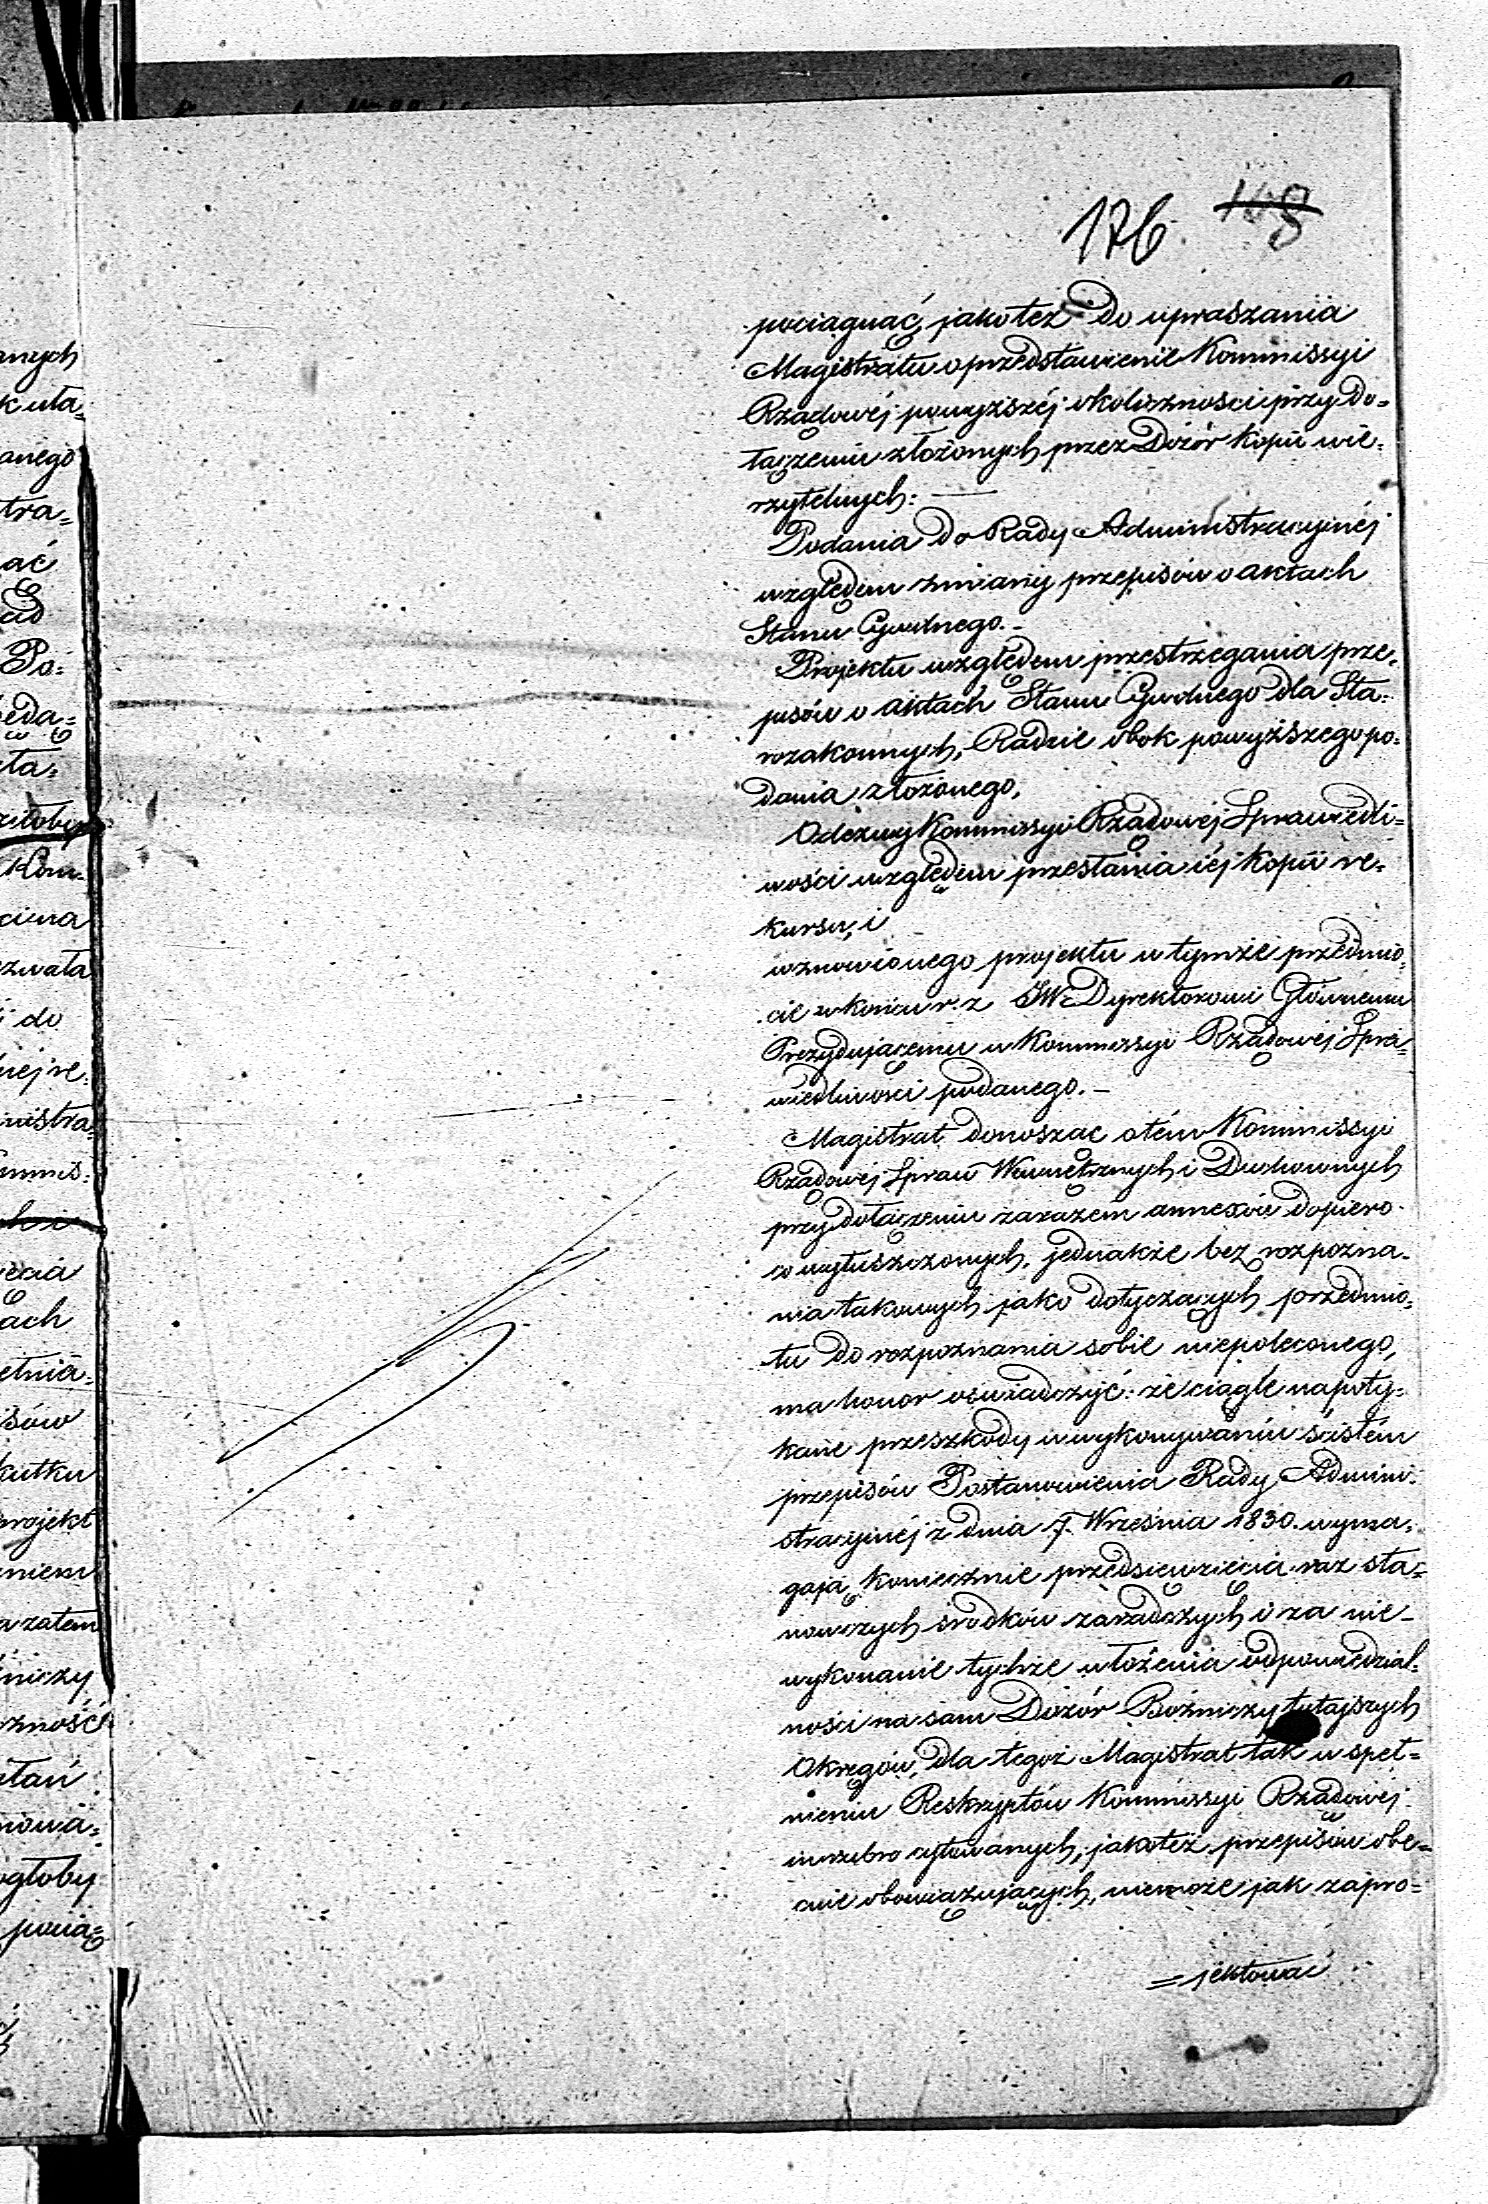 176. 108
pociągnąć, jako też do upraszania
Magistratu o przedstawienie Kommissyi
Rządowéj powyższéj okoliczności przy do=
łączeniu złożonych przez Dozór kopii wie=
rzytelnych: —
Podania do Rady Administracyinéj
względem zmiany przepisów o aktach
Stanu Cywilnego. –
Projektu względem przestrzegania prze=
pisów o aktach Stanu Cywilnego dla Sta=
rozakonnych, Radzie obok powyższego po=
dania złożonego,
Odezwy Kommissyi Rządowéj Sprawiedli=
wości względem przesłania iéj kopii re=
kursu, i
wznowionego projektu w tymże przedmio=
cie w końcu r. z JW Dyrektorowi Głównemu
Prezydującemu w Kommissyi Rządowéj Spra=
wiedliwości podanego. –
Magistrat donosząc o tém Kommissyi
Rządowéj Spraw Wewnętrznych i Duchownych
przy dołączeniu zarazem annexów dopiero
co wytuszczonych, jednakże bez rozpozna=
nia takowych jako dotyczących przedmio=
tu do rozpoznania sobie niepoleconego,
ma honor oświadczyć: że ciągle napoty=
kane przeszkody w wykonywaniu ścisłém
przepisów Postanowienia Rady Admini=
stracyinéj z dnia 7. Września 1830. wyma=
gają koniecznie przedsięwzięcia raz sta=
nowczych środków zaradczych i za nie=
wykonanie tychże włożenia odpowiedzial=
ności na sam Dozór Bożniczy tutajszych
Okręgów, dla tegoż Magistrat tak w speł=
nieniu Reskryptów Kommissyi Rządowéj
cytowanych, jakoteż przepisów obe=
cnie obowiązujących, niemoże jak zapro=
= jektować
anych
kuta=
anego
tra=
ać
Po=
ęda=
ła=
Kom=
zwała
do
néj re=
nistra=
ęcia
ach
ełnia=
sów
kutku
projekt
niem
a zatem
niczy
zność
nowa=
ogłoby